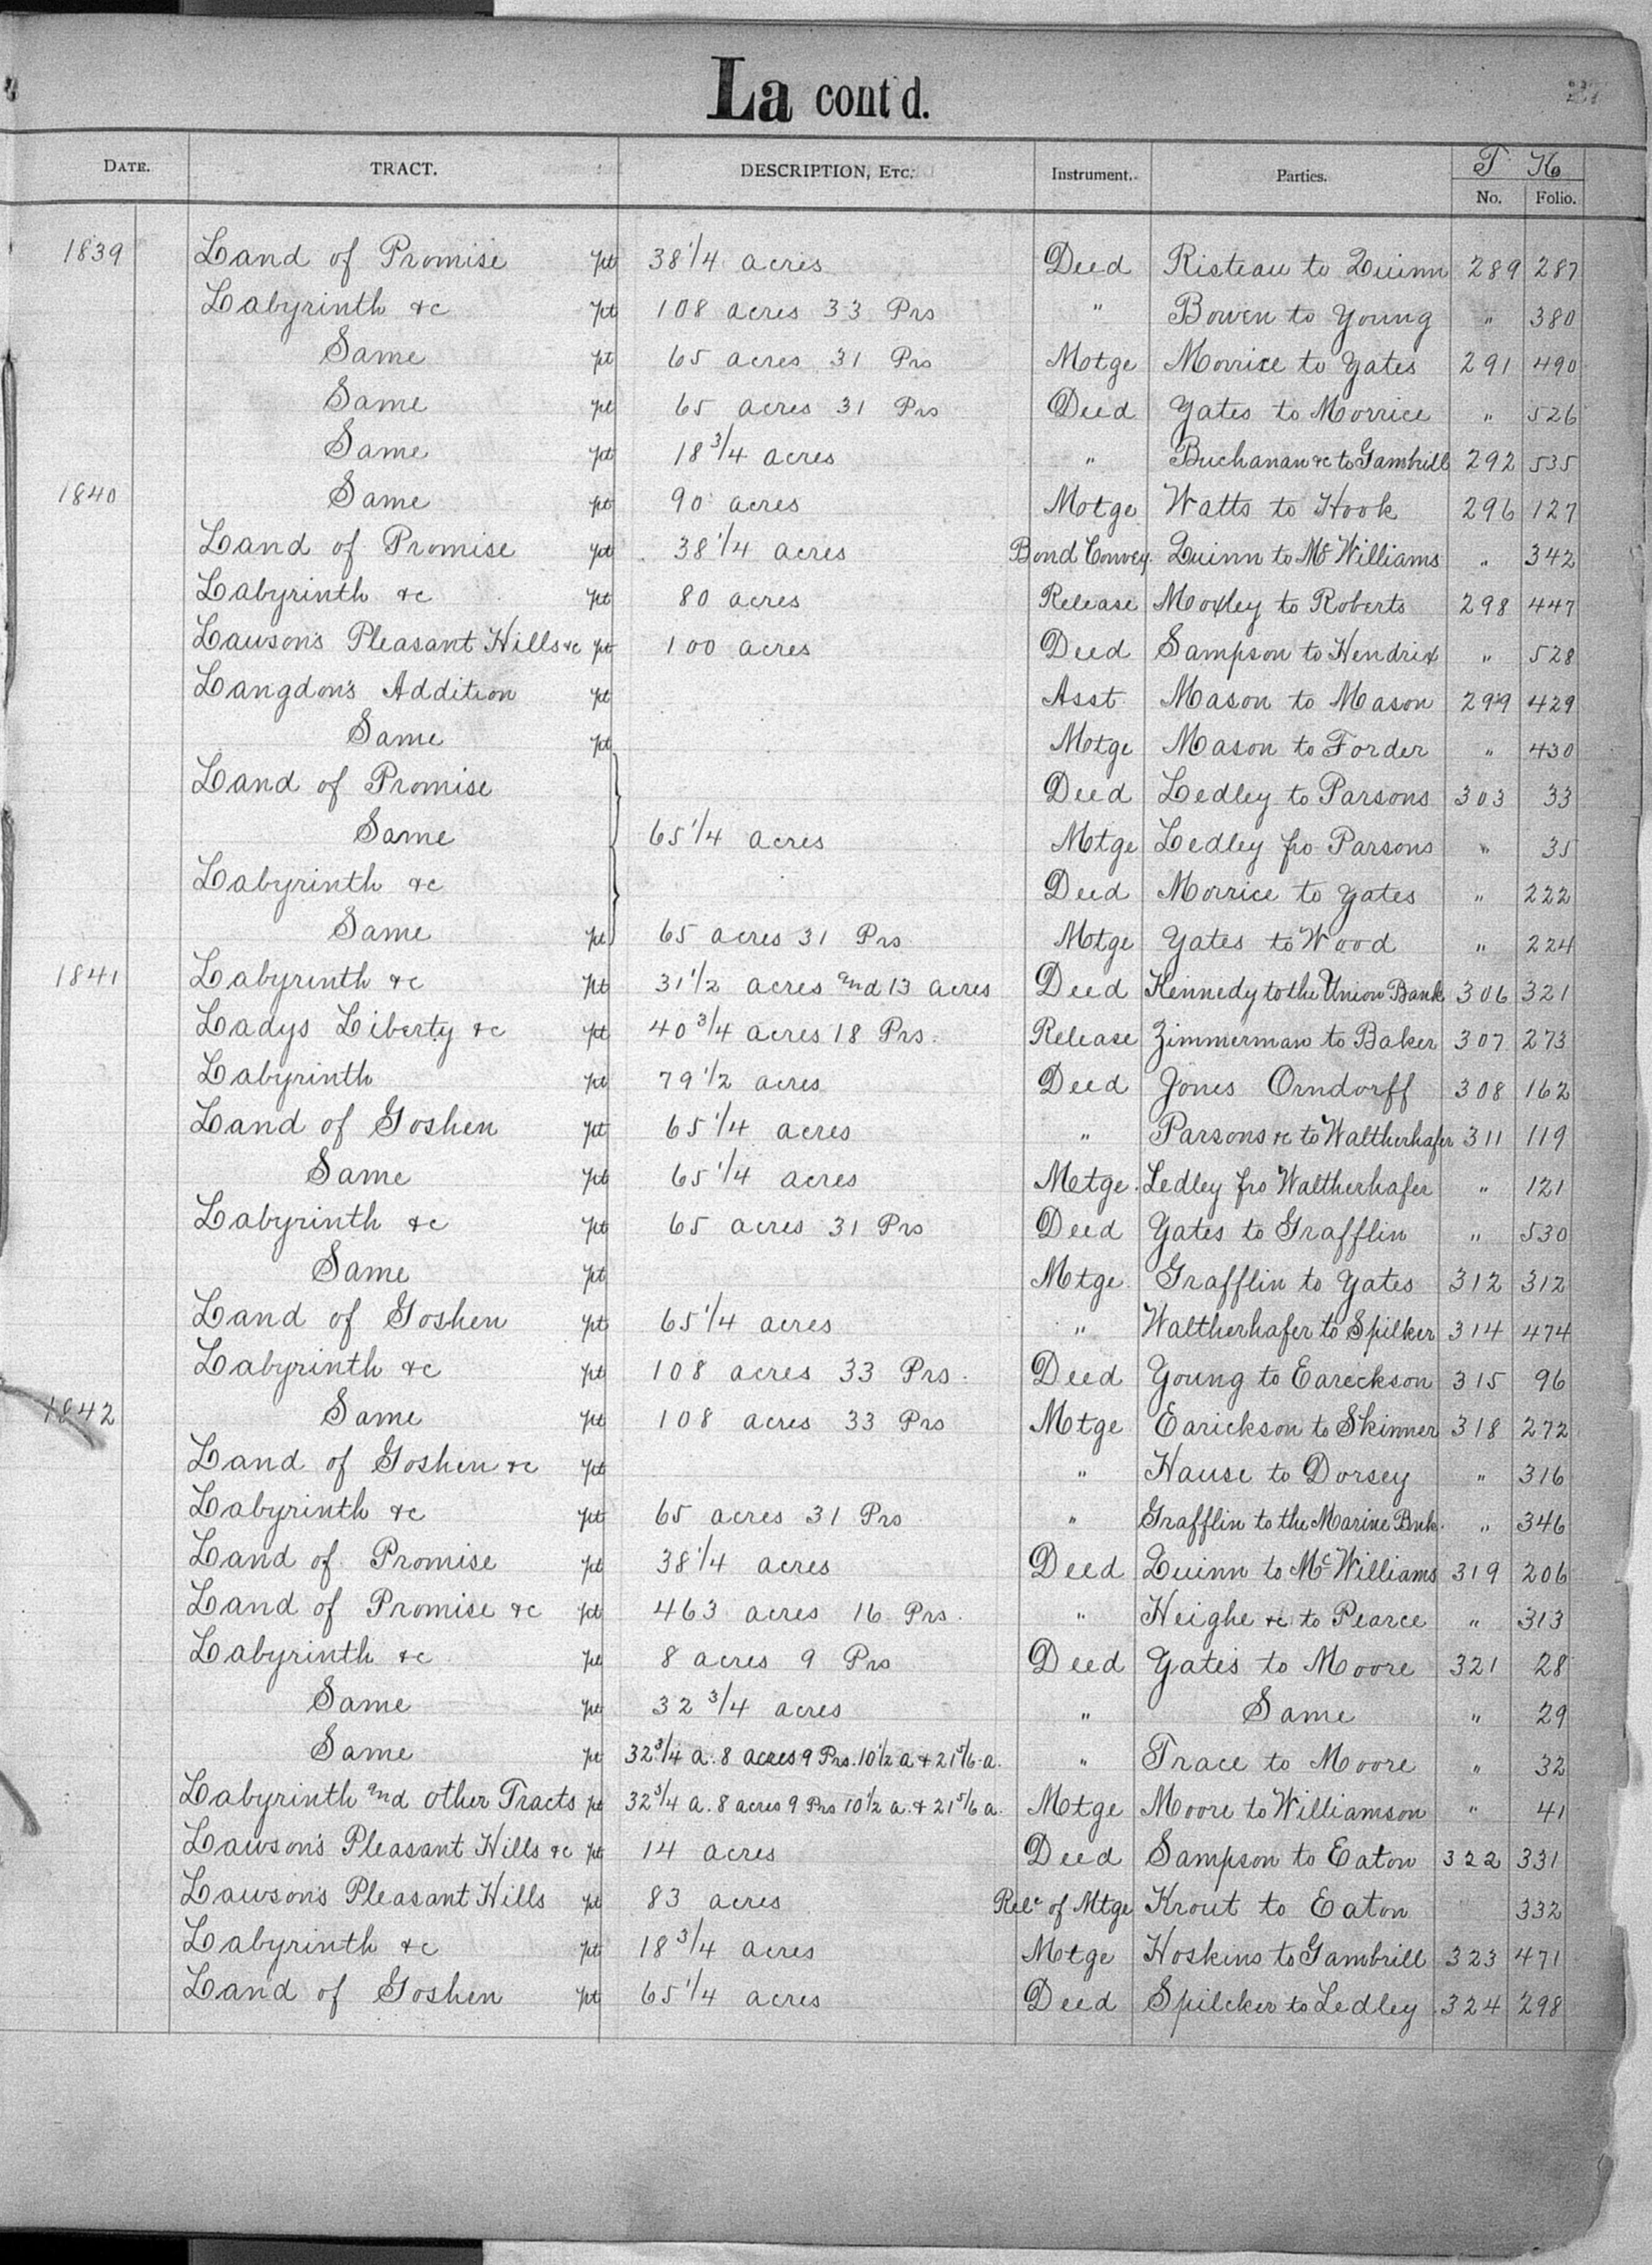 La cont'd.
DATE. TRACT. DESCRIPTION, ETC. Instrument. Parties. T K
No. Folio.
1839 Land of Promise pt 38 1/4 acres Deed Risteau to Quinn 289 287
Labyrinth &c pt 108 acres 33 Prs " Bowen to Young " 380
Same pt 65 acres 31 Prs Motge Morrice to Yates 291 490
Same pt 65 acres 31 Prs Deed Yates to Morrice " 526
Same pt 18 3/4 acres " Buchanan &c to Gambrill 292 535
1840 Same pt 90 acres Motge Watts to Hook 296 127
Land of Promise pt 38 1/4 acres Bond Convey. Quinn to McWilliams " 342
Labyrinth &c pt 80 acres Release Moxley to Roberts 298 447
Lawson's Pleasant Hills &c pt 100 acres Deed Sampson to Hendrix " 528
Langdon's Addition pt Asst Mason to Mason 299 429
Same pt Motge Mason to Forder " 430
Land of Promise Deed Ledley to Parsons 303 33
Same 65 1/4 acres Motge Ledley fro Parsons " 35
Labyrinth &c Deed Morrice to Yates " 222
Same pt 65 acres 31 Prs Motge Yates to Wood " 224
1841 Labyrinth &c pt 31 1/2 acres and 13 acres Deed Kennedy to the Union Bank 306 321
Ladys Liberty &c pt 40 3/4 acres 18 Prs. Release Zimmerman to Baker 307 273
Labyrinth pt 79 1/2 acres Deed Jones Orndorff 308 162
Land of Goshen pt 65 1/4 acres " Parsons &c to Waltherhafer 311 119
Same pt 65 1/4 acres Motge. Ledley fro Waltherhafer " 121
Labyrinth &c pt 65 acres 31 Prs Deed Yates to Grafflin " 530
Same pt Mtge. Grafflin to Yates 312 312
Land of Goshen pt 65 1/4 acres " Waltherhafer to Spilker 314 474
Labyrinth &c pt 108 acres 33 Prs. Deed Young to Eareckson 315 96
1842 Same pt 108 acres 33 Prs Motge Earickson to Skinner 318 272
Land of Goshen &c pt " Hause to Dorsey " 316
Labyrinth &c pt 65 acres 31 Prs " Grafflin to the Marine Bnk. " 346
Land of Promise pt 38 1/4 acres Deed Quinn to McWilliams 319 206
Land of Promise &c pt 463 acres 16 Prs. " Heighe &c to Pearce " 313
Labyrinth &c pt 8 acres 9 Prs Deed Yates to Moore 321 28
Same pt 32 3/4 acres " Same " 29
Same pt 32 3/4 a. 8 acres 9 Prs. 10 1/2 a & 21 5/6 a. " Trace to Moore " 32
Labyrinth and other Tracts pt 32 3/4 a. 8 acres 9 Prs 10 1/2 a. & 21 5/6 a. Motge Moore to Williamson " 41
Lawson's Pleasant Hills &c pt 14 acres Deed Sampson to Eaton 322 331
Lawson's Pleasant Hills pt 83 acres Relc of Mtge Krout to Eaton 332
Labyrinth &c pt 18 3/4 acres Motge Hoskins to Gambrill 323 471
Land of Goshen pt 65 1/4 acres Deed Spilcker to Ledley 324 298